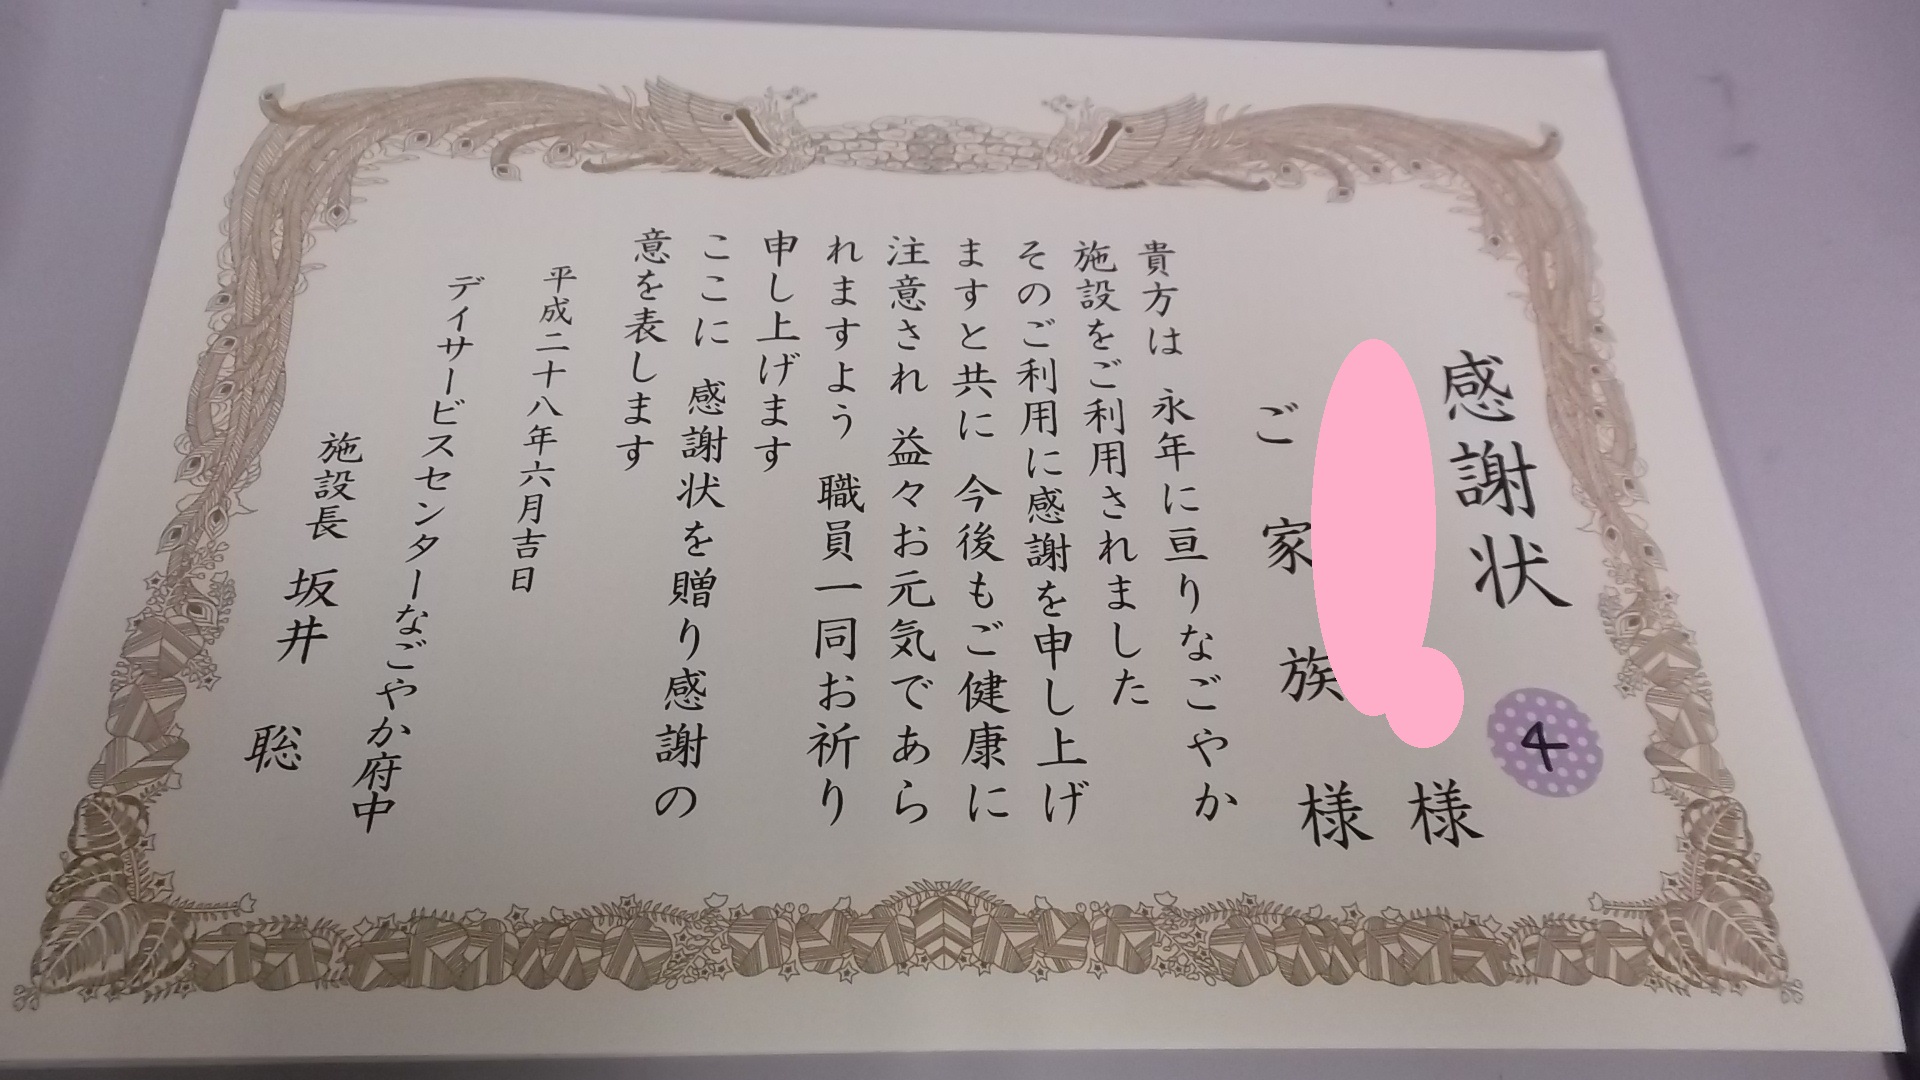 感謝状
様
ご家族様
貴方は 永年に亘りなごやか
施設をご利用されました
そのご利用に感謝を申し上げ
ますと共に 今後もご健康に
注意され 益々お元気であら
れますよう 職員一同お祈り
申し上げます
ここに 感謝状を贈り感謝の
意を表します
平成二十八年六月吉日
デイサービスセンターなごやか府中
施設長 坂井 聡
4